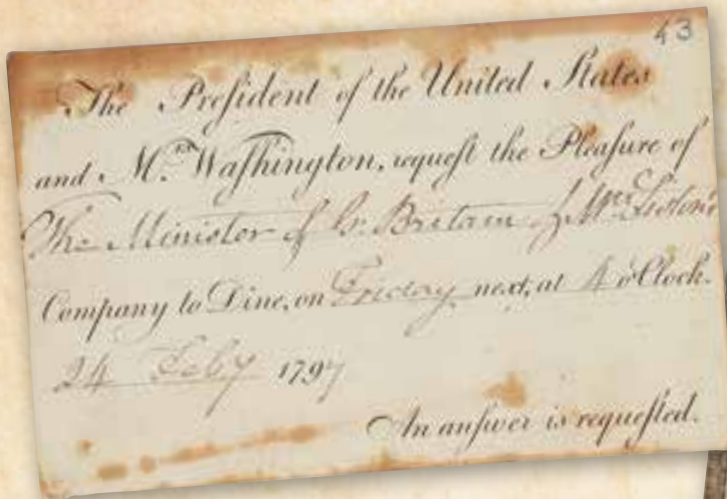 43
The Preſident of the United States
and Mrs. Waſhington, requeſt the Pleaſure of
The Minister of Gr. Britain & Mrs Liston's
Company to Dine, on Friday next, at 4 o'Clock.
24 Feby 1797
An anſwer is requeſted.